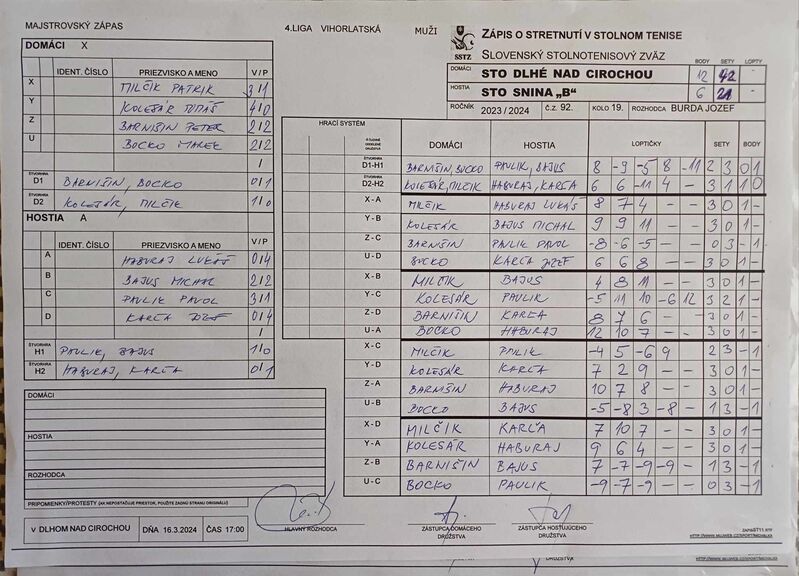 MAJSTROVSKÝ ZÁPAS
4.LIGA VIHORLATSKÁ MUŽI
ZÁPIS O STRETNUTÍ V STOLNOM TENISE
SSTZ SLOVENSKÝ STOLNOTENISOVÝ ZVÄZ
BODY SETY LOPTY
DOMÁCI STO DLHÉ NAD CIROCHOU 12 42
HOSTIA STO SNINA „B“ 6 21
ROČNÍK 2023 / 2024 Č.Z. 92. KOLO 19. ROZHODCA BURDA JOZEF
DOMÁCI X
IDENT. ČÍSLO PRIEZVISKO A MENO V/P
X MILČIK PATRIK 3/1
Y KOLESÁR TOMÁŠ 4/0
Z BARNIŠIN PETER 2/2
U BOCKO MAREK 2/2
/
ŠTVORHRA D1 BARNIŠIN, BOCKO 0/1
ŠTVORHRA D2 KOLESÁR, MILČIK 1/0
HOSTIA A
IDENT. ČÍSLO PRIEZVISKO A MENO V/P
A HABURAJ LUKÁŠ 0/4
B BAJUS MICHAL 2/2
C PAULIK PAVOL 3/1
D KARĽA JOZEF 0/4
/
ŠTVORHRA H1 PAULIK, BAJUS 1/0
ŠTVORHRA H2 HABURAJ, KARĽA 0/1
DOMÁCI
HOSTIA
ROZHODCA
PRIPOMIENKY/PROTESTY (AK NEPOSTAČUJE PRIESTOR, POUŽITE ZADNÚ STRANU ORIGINÁLU)
V DLHOM NAD CIROCHOU DŇA 16.3.2024 ČAS 17:00
HRACÍ SYSTÉM
DOMÁCI HOSTIA LOPTIČKY SETY BODY
ŠTVORHRA D1-H1 BARNIŠIN, BOCKO PAULIK, BAJUS 8 -9 -5 8 -11 2 3 0 1
ŠTVORHRA D2-H2 KOLESÁR, MILČIK HABURAJ, KARĽA 6 6 -11 4 - 3 1 1 0
X - A MILČIK HABURAJ LUKÁŠ 8 7 4 - - 3 0 1 -
Y - B KOLESÁR BAJUS MICHAL 9 9 11 - - 3 0 1 -
Z - C BARNIŠIN PAULIK PAVOL -8 -6 -5 - - 0 3 - 1
U - D BOCKO KARĽA JOZEF 6 6 8 - - 3 0 1 -
X - B MILČIK BAJUS 4 8 11 - - 3 0 1 -
Y - C KOLESÁR PAULIK -5 11 10 -6 12 3 2 1 -
Z - D BARNIŠIN KARĽA 8 7 6 - - 3 0 1 -
U - A BOCKO HABURAJ 12 10 7 - - 3 0 1 -
X - C MILČIK PAULIK -4 5 -6 9 2 3 - 1
Y - D KOLESÁR KARĽA 7 2 9 - - 3 0 1 -
Z - A BARNIŠIN HABURAJ 10 7 8 - - 3 0 1 -
U - B BOCKO BAJUS -5 -8 3 -8 - 1 3 - 1
X - D MILČIK KARĽA 7 10 7 - - 3 0 1 -
Y - A KOLESÁR HABURAJ 9 6 4 - - 3 0 1 -
Z - B BARNIŠIN BAJUS 7 -7 -9 -9 - 1 3 - 1
U - C BOCKO PAULIK -9 -7 -9 - - 0 3 - 1
HLAVNÝ ROZHODCA
ZÁSTUPCA DOMÁCEHO DRUŽSTVA
ZÁSTUPCA HOSŤUJÚCEHO DRUŽSTVA
DRUŽSTVA DRUŽSTVA